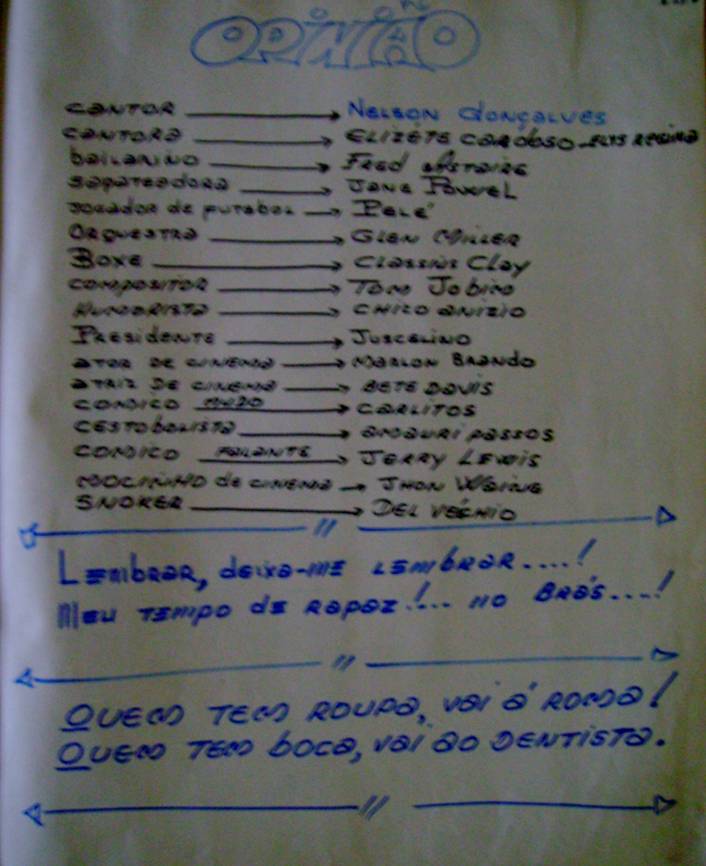 OPINIÃO
CANTOR → NELSON GONÇALVES
CANTORA → ELIZETE CARDOSO - ELIS REGINA
bailarino → FRED ASTAIRE
SAPATEADORA → JANE POWEL
JOGADOR de FUTEBOL → PELÉ
ORQUESTRA → GLEN MILLER
BOXE → CLASSIUS Clay
COMPOSITOR → TOM JOBIM
HUMORISTA → CHICO ANIZIO
PRESIDENTE → JUSCELINO
ATOR DE CINEMA → MARLON BRANDO
ATRIZ DE CINEMA → BETE DAVIS
COMICO MUDO → CARLITOS
CESTOBOLISTA → AMAURI PASSOS
COMICO FALANTE → JERRY LEWIS
MOCINHO de CINEMA → JHON WAINE
SNOKER → DEL VÉCHIO
LEMBRAR, deixa-ME LEMBRAR....!
MEU TEMPO DE RAPAZ!... NO BRÁS....!
QUEM TEM ROUPA, VAI Á ROMA!
QUEM TEM BOCA, VAI AO DENTISTA.